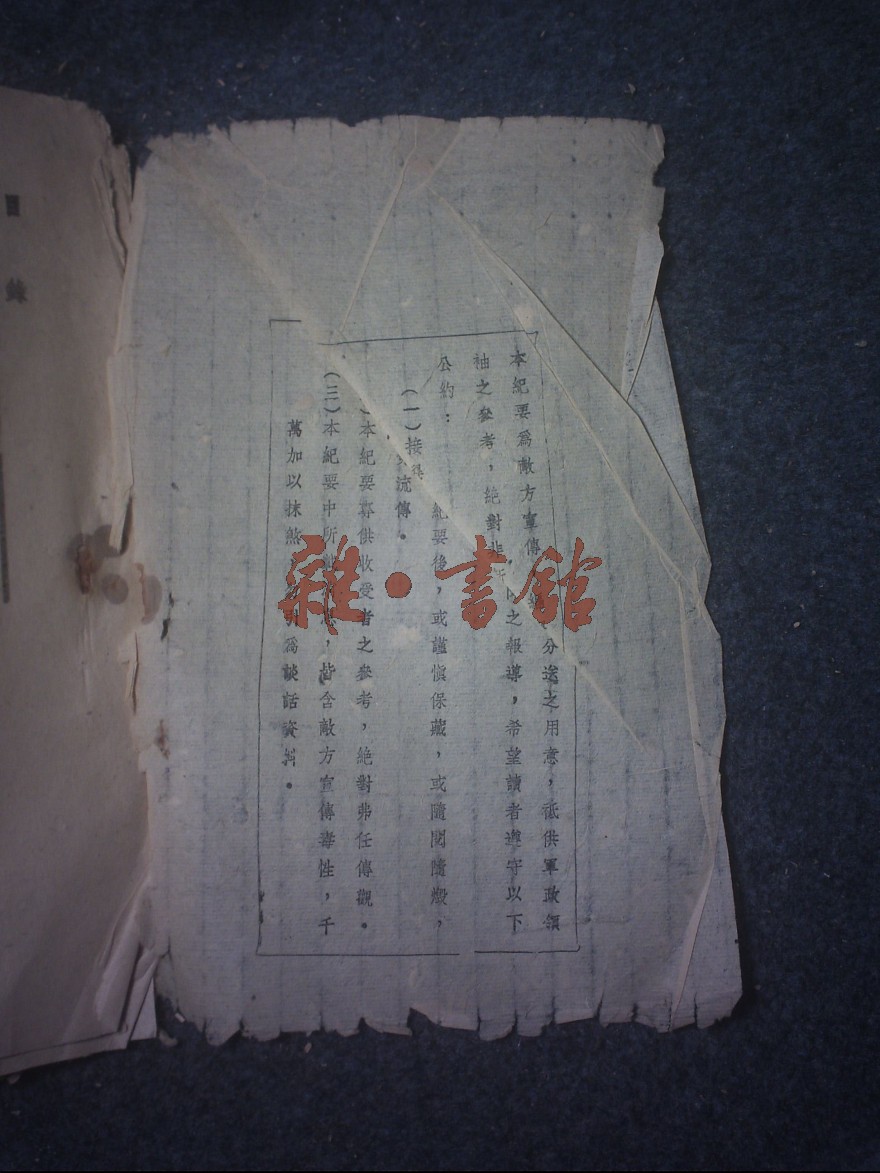 本紀要爲敵方宣傳 分送之用意，祗供軍政領
袖之參考，絕對非 之報導，希望讀者遵守以下
公約：
（一）接得 紀要後，或謹慎保藏，或隨閱隨燬，
流傳。
本紀要專供收受者之參考，絕對弗任傳觀。
（三）本紀要中所 ，皆含敵方宣傳毒性，千
萬加以抹煞， 引爲談話資料。
目錄
雜·書館